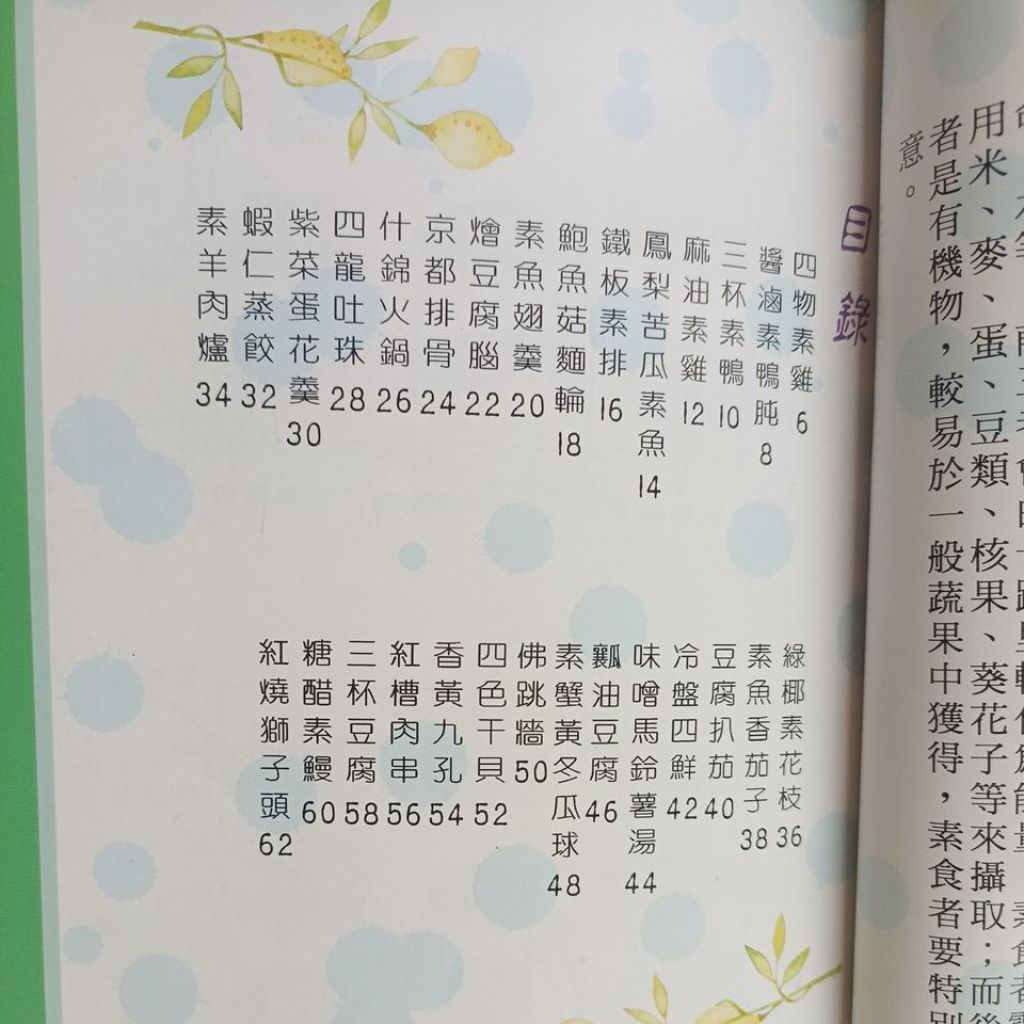 用米、麥、蛋、豆類、核果、葵花子等來攝取；而後
者是有機物，較易於一般蔬果中獲得，素食者要特別
意。
目錄
四物素雞 6
醬滷素鴨肫 8
三杯素鴨 10
麻油素雞 12
鳳梨苦瓜素魚 14
鐵板素排 16
鮑魚菇麵輪 18
素魚翅羹 20
燴豆腐腦 22
京都排骨 24
什錦火鍋 26
四龍吐珠 28
紫菜蛋花羹 30
蝦仁蒸餃 32
素羊肉爐 34
綠椰素花枝 36
素魚香茄子 38
豆腐扒茄 40
冷盤四鮮 42
味噌馬鈴薯湯 44
瓤油豆腐 46
素蟹黃冬瓜球 48
佛跳牆 50
四色干貝 52
香黃九孔 54
紅槽肉串 56
三杯豆腐 58
糖醋素鰻 60
紅燒獅子頭 62